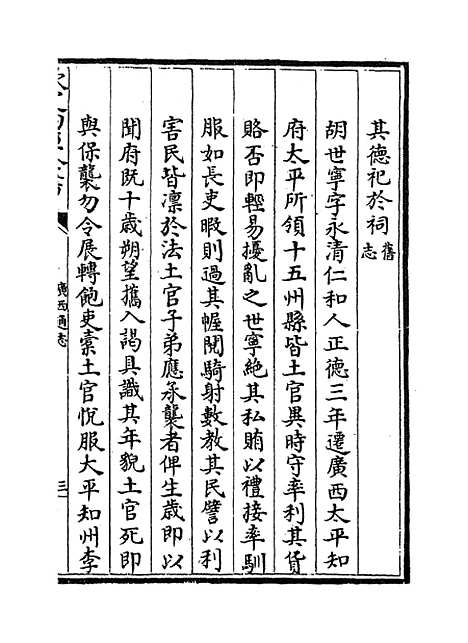 其德祀於祠舊志
胡世寧字永清仁和人正德三年遷廣西太平知
府太平所領十五州縣皆土官異時守率利其貨
賂否即輕易擾亂之世寧絶其私賄以禮接率馴
服如長吏暇則過其幄閱騎射數教其民譬以利
害民皆凛於法土官子弟應承襲者俾生歲即以
聞府既十歲朔望攜入謁具識其年貌土官死即
與保襲勿令展轉飽吏橐土官悅服大平知州李
廣西通志